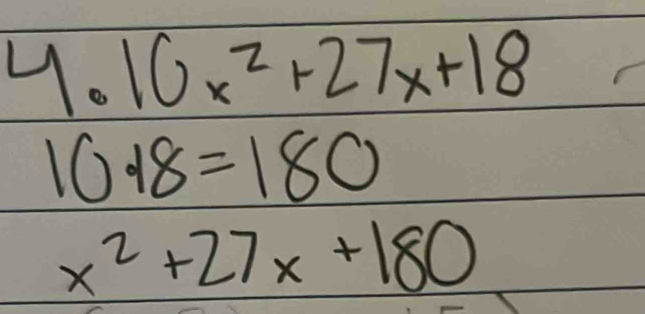 4. 10x² + 27x + 18
10 · 18 = 180
x² + 27x + 180